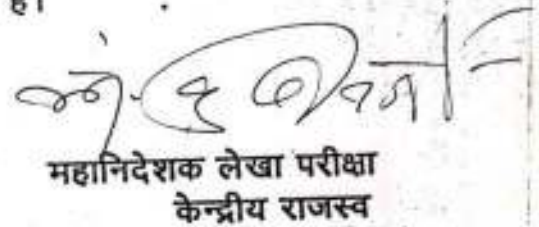 है।
महानिदेशक लेखा परीक्षा
केन्द्रीय राजस्व